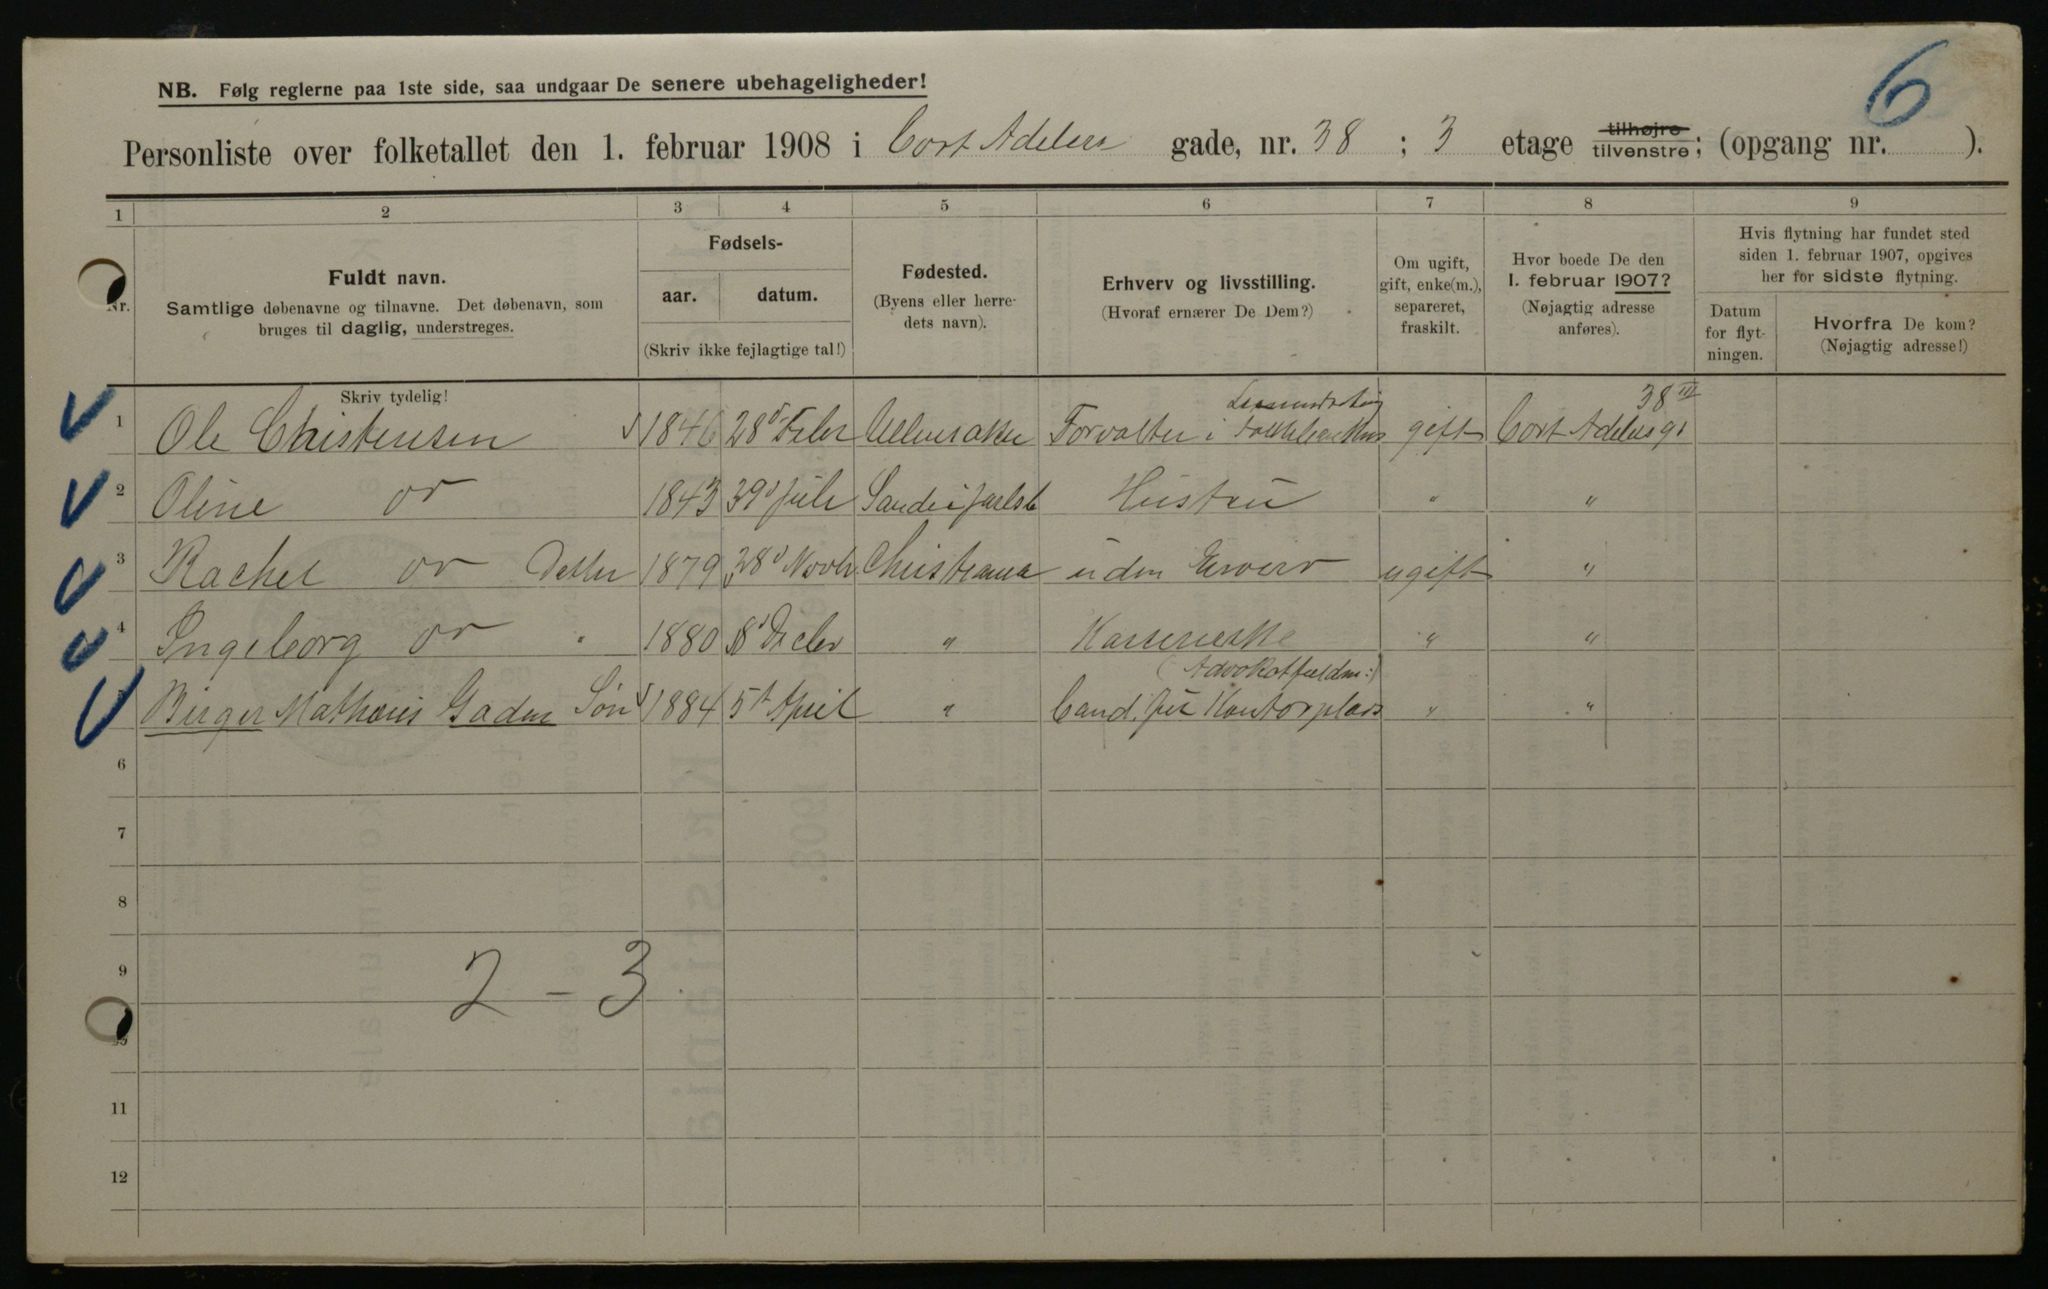 6
NB. Følg reglerne paa 1ste side, saa undgaar De senere ubehageligheder!
Personliste over folketallet den 1. februar 1908 i Cort Adelers gade, nr. 38 ; 3 etage tilhøjre tilvenstre; (opgang nr. ).
1 2 3 4 5 6 7 8 9
Nr.
Fuldt navn.
Samtlige døbenavne og tilnavne. Det døbenavn, som
bruges til daglig, understreges.
Skriv tydelig!
Fødsels-
aar. datum.
(Skriv ikke fejlagtige tal!)
Fødested.
(Byens eller herre-
dets navn).
Erhverv og livsstilling.
(Hvoraf ernærer De Dem?)
Om ugift,
gift, enke(m.),
separeret,
fraskilt.
Hvor boede De den
1. februar 1907?
(Nøjagtig adresse
anføres).
Hvis flytning har fundet sted
siden 1. februar 1907, opgives
her for sidste flytning.
Datum
for flyt-
ningen.
Hvorfra De kom?
(Nøjagtig adresse!)
1 Ole Christensen 1846 28' Febr Ullensaker Forvalter i gift Cort Adelersg. 38 III
2 Oline or 1843 Juli Sande i Jarlsb Hustru " "
3 Rachel or Datter 1879 28' Novbr Christiania uden Erverv ugift "
4 Ingeborg or " 1880 8' Decbr " Kassererske " "
(Advokatfuldm:)
Birger Mathæus Gaden Søn 1884 5t April " Cand. jur Kontorplads " "
6
7
8
9
2 - 3
11
12